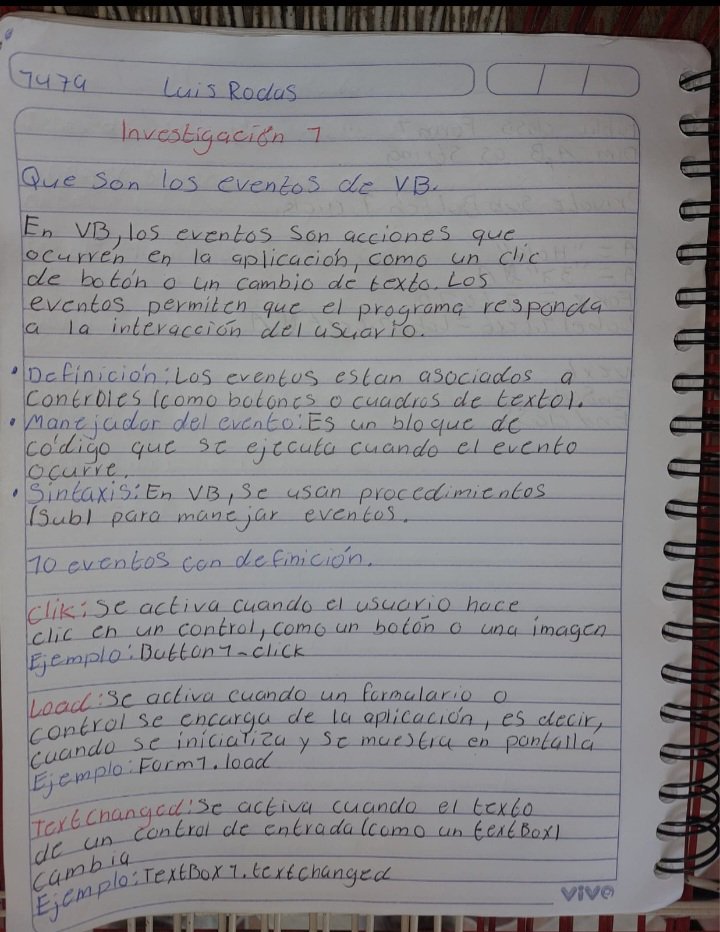 7479 Luis Rodas
Investigación 1
Que son los eventos de VB.
En VB, los eventos son acciones que
ocurren en la aplicación, como un clic
de botón o un cambio de texto. Los
eventos permiten que el programa responda
a la interacción del usuario.
• Definición: Los eventos estan asociados a
controles (como botones o cuadros de texto).
• Manejador del evento: Es un bloque de
código que se ejecuta cuando el evento
ocurre.
• Sintaxis: En VB, se usan procedimientos
(Sub) para manejar eventos.
10 eventos con definición.
Clik: Se activa cuando el usuario hace
clic en un control, como un botón o una imagen
Ejemplo: Button1-click
Load: Se activa cuando un formulario o
control se encarga de la aplicación, es decir,
cuando se inicializa y se muestra en pantalla
Ejemplo: Form1.load
TextChanged: Se activa cuando el texto
de un control de entrada (como un textBox)
cambia
Ejemplo: TextBox1.textchanged
vive